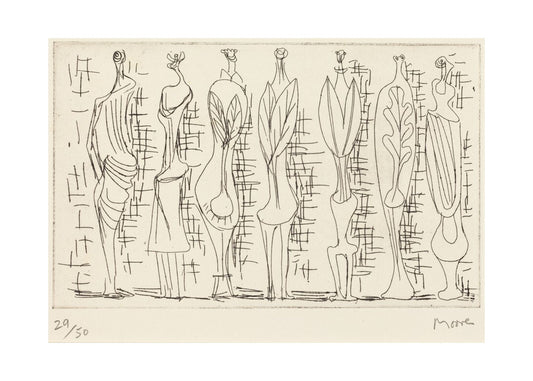 29/50
Moore